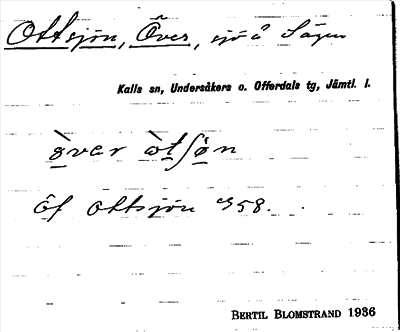 Ottsjön, Över, sjö å Sågen
Kalls sn, Undersåkers o. Offerdals tg, Jämtl. l.
över òtʃøn
Öf Ottsjön 58.
BERTIL BLOMSTRAND 1936